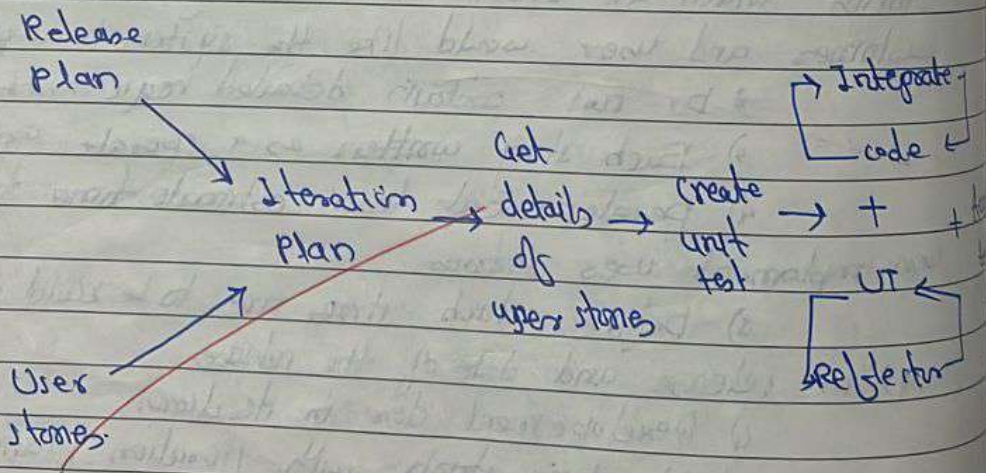 Release
Plan
Iteration
Plan
User
stories.
Get
details
of
user stories
Create
unit
test
Integrate
code
+
UT
Refactor
+